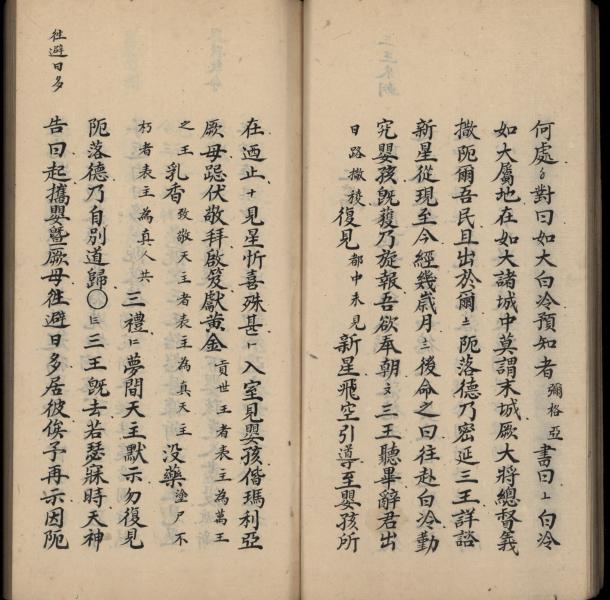 何處〥對曰如大白冷預知者彌格亞書曰〦白冷
如大屬地在如大諸城中莫謂末城厥大將總督義
撒阨爾吾民且出於爾〧阨落德乃密延三王詳諮
新星從現至今經幾歲月〨後命之曰往赴白冷勤
究嬰孩既穫乃旋報吾欲奉朝〩三王聽畢辭君出
日路撒稜復見都中未見新星飛空引導至嬰孩所
在迺止十見星忻喜殊甚二入室見嬰孩偕瑪利亞
厥母跽伏敬拜啟笈獻黃金貢世王者表主為萬王
之王乳香致敬天主者表主為真天主没藥塗尸不
朽者表主為真人共三禮二夢間天主默示勿復見
阨落德乃自別道歸〇三三王既去若瑟寐時天神
告曰起攜嬰暨厥母徃避日多居彼俟予再示因阨
徃避日多